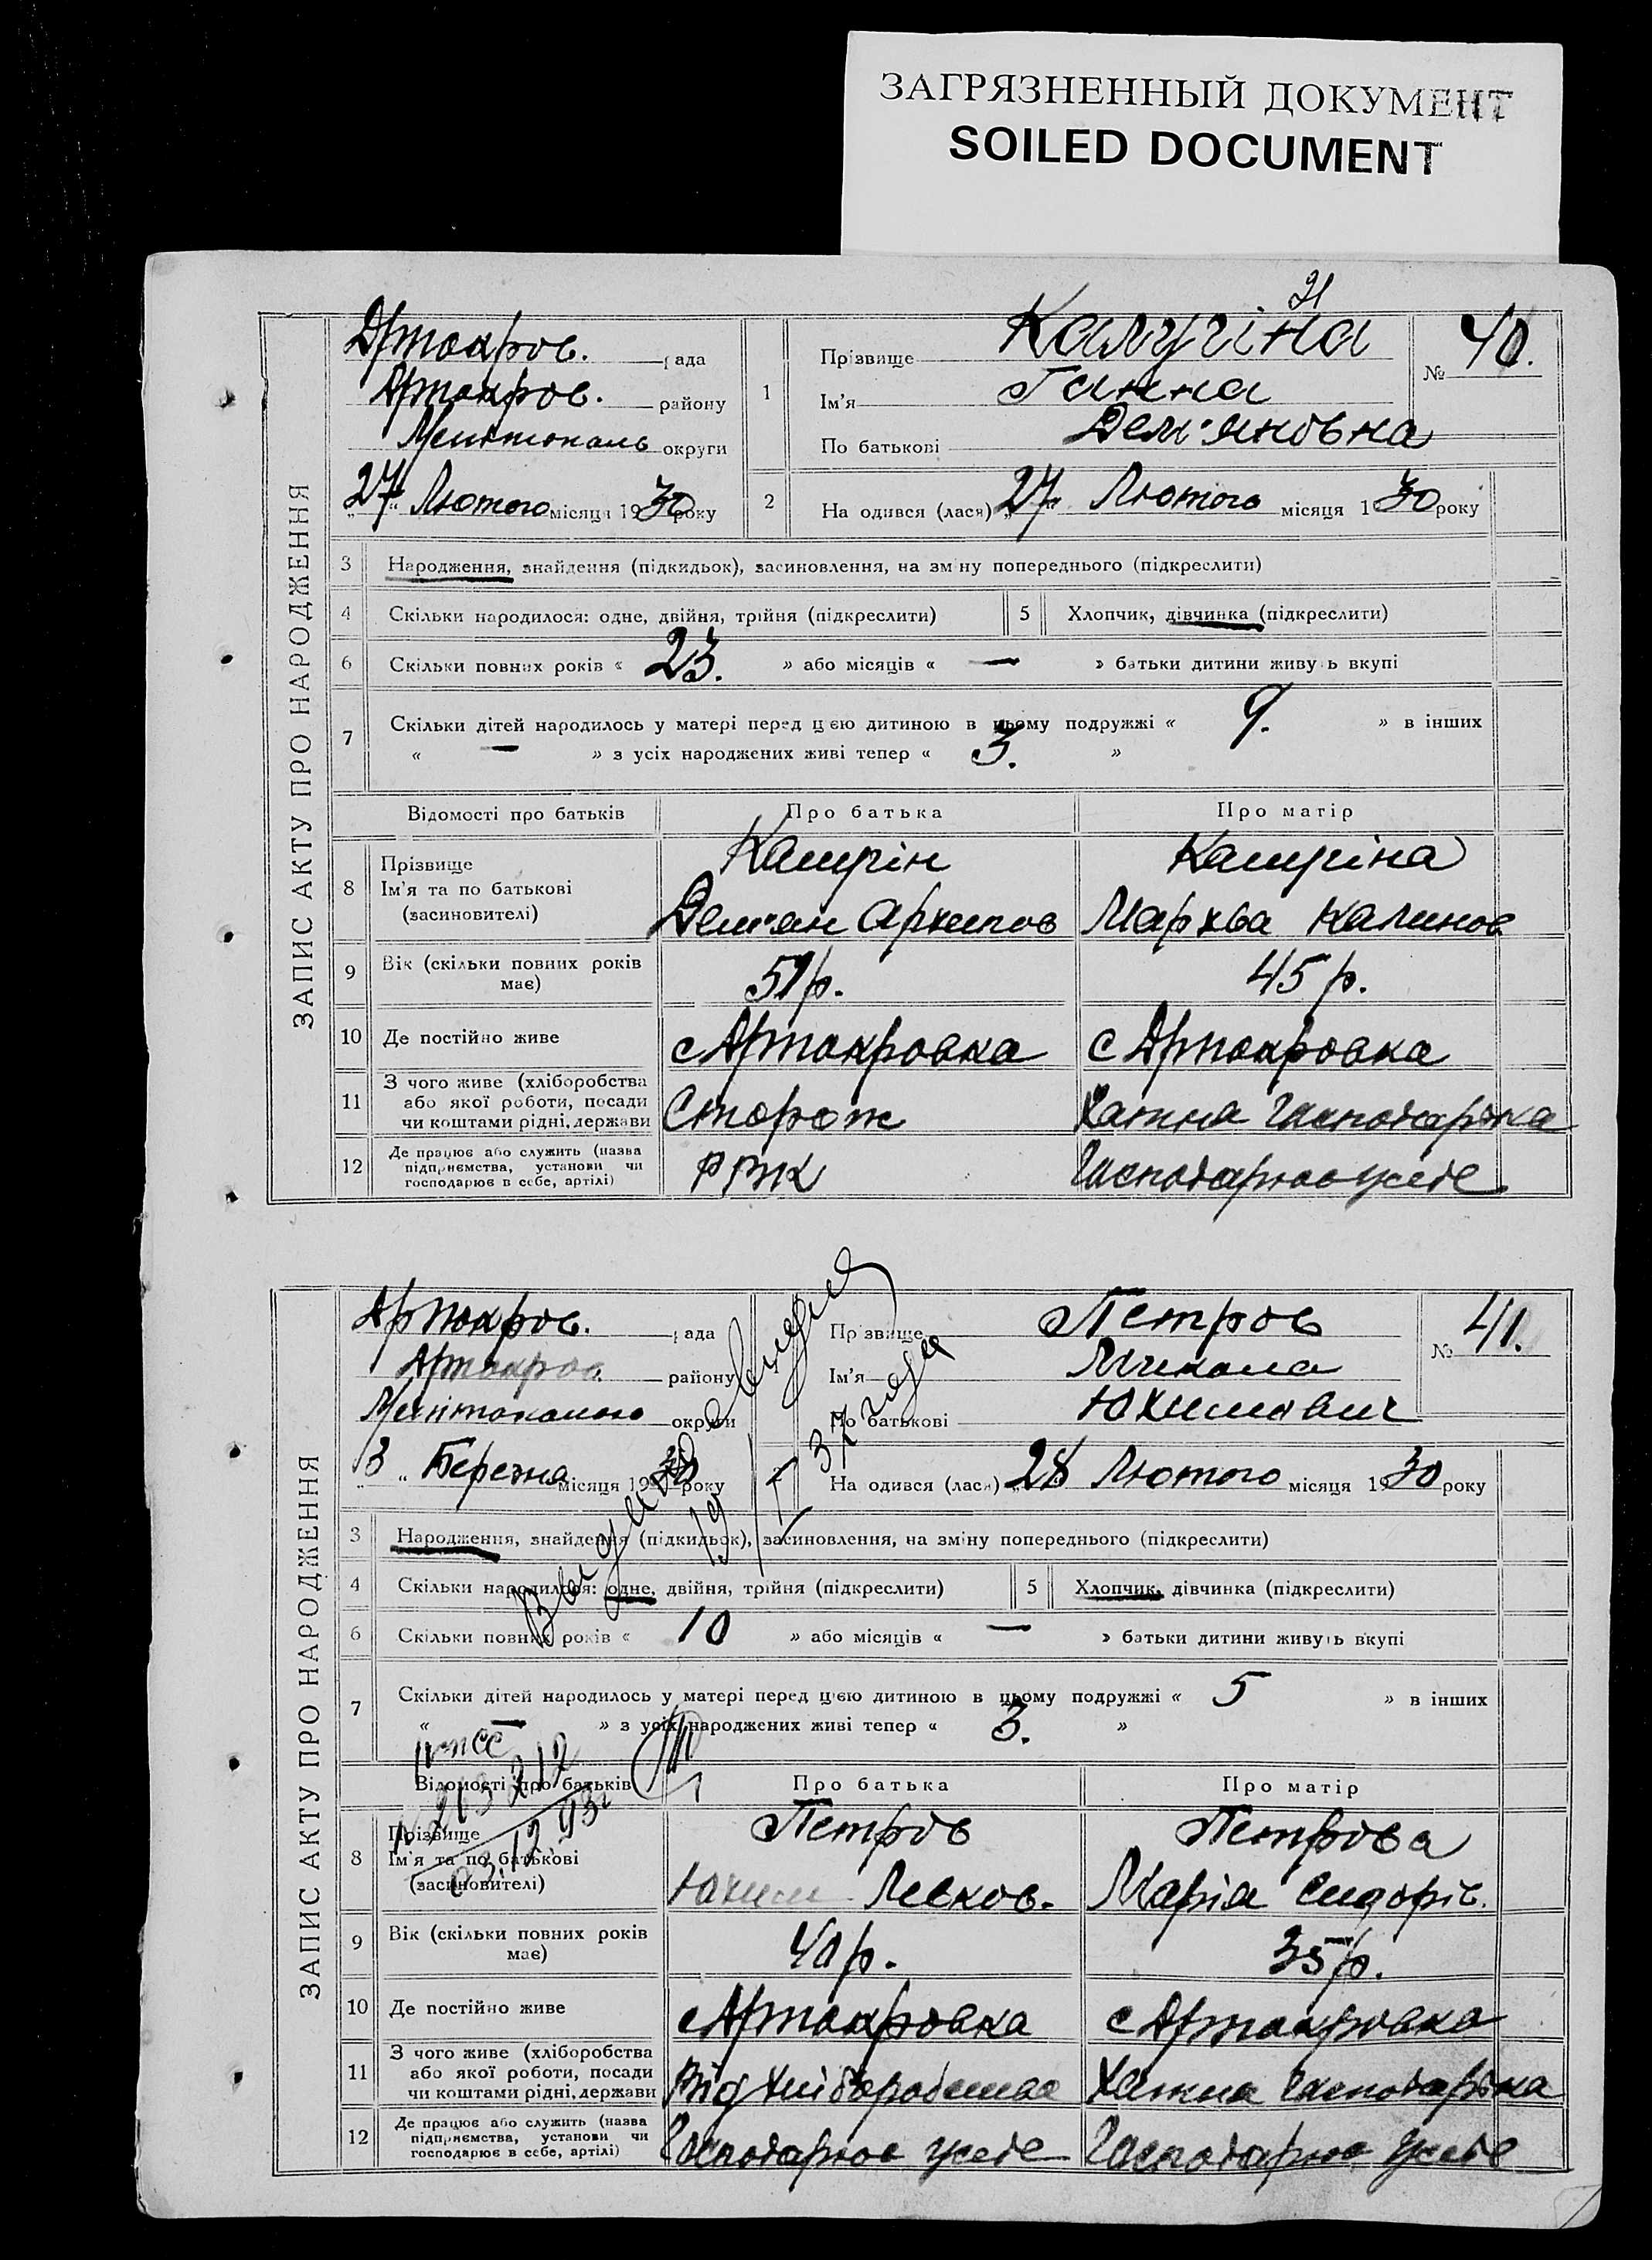 ЗАГРЯЗНЕННЫЙ ДОКУМЕНТ
SOILED DOCUMENT
21
ЗАПИС АКТУ ПРО НАРОДЖЕННЯ
Артокров. рада
Артокров. району
Мелітополь округи
„27“ Лютого місяця 1930 року
1 Прізвище Калугіна
Ім'я Ганна
По батькові Дем'яновна
№ 40.
2 На одився (лася) „27“ Лютого місяця 1930 року
3 Народження, знайдення (підкидьок), засиновлення, на зміну попереднього (підкреслити)
4 Скільки народилося: одне, двійня, трійня (підкреслити) 5 Хлопчик, дівчинка (підкреслити)
6 Скільки повних років « 23. » або місяців « — » батьки дитини живуть вкупі
7 Скільки дітей народилось у матері перед цією дитиною в цьому подружжі « 9. » в інших
« — » з усіх народжених живі тепер « 3. »
Відомості про батьків Про батька Про матір
8 Прізвище
Ім'я та по батькові
(засиновителі)
Калугін
Дем'ян Архипов
Калугіна
Мархва Калинов
9 Вік (скільки повних років
має)
51 р. 45 р.
10 Де постійно живе с Артокровка с Артокровка
11 З чого живе (хліборобства
або якої роботи, посади
чи коштами рідні, держави
Сторож Хатня Гаспотарка
12 Де працює або служить (назва
підприємства, установи чи
господарює в себе, артілі)
РВК Гаспотарює усебе
ЗАПИС АКТУ ПРО НАРОДЖЕННЯ
Артокров. рада
Артокров. району
округи
„3“ Березня місяця 1930 року
Прізвище Петров
Ім'я Микола
По батькові Юхимович
№ 41.
На одився (лася) „28“ Лютого місяця 1930 року
37 года
3 Народження, знайдення (підкидьок), засиновлення, на зміну попереднього (підкреслити)
4 Скільки народилося: одне, двійня, трійня (підкреслити) 5 Хлопчик, дівчинка (підкреслити)
6 Скільки повних років « 10 » або місяців « — » батьки дитини живуть вкупі
7 Скільки дітей народилось у матері перед цією дитиною в цьому подружжі « 5 » в інших
« — » з усіх народжених живі тепер « 3. »
Відомості про батьків Про батька Про матір
8 Прізвище
Ім'я та по батькові
(засиновителі)
Петров
Юхим Левков.
Петрова
Марія Сидорів.
9 Вік (скільки повних років
має)
40 р. 35 р.
10 Де постійно живе с Артокровка с Артокровка
11 З чого живе (хліборобства
або якої роботи, посади
чи коштами рідні, держави
Від Хатня Гаспотарка
12 Де працює або служить (назва
підприємства, установи чи
господарює в себе, артілі)
Гаспотарює усебе Гаспотарює усебе